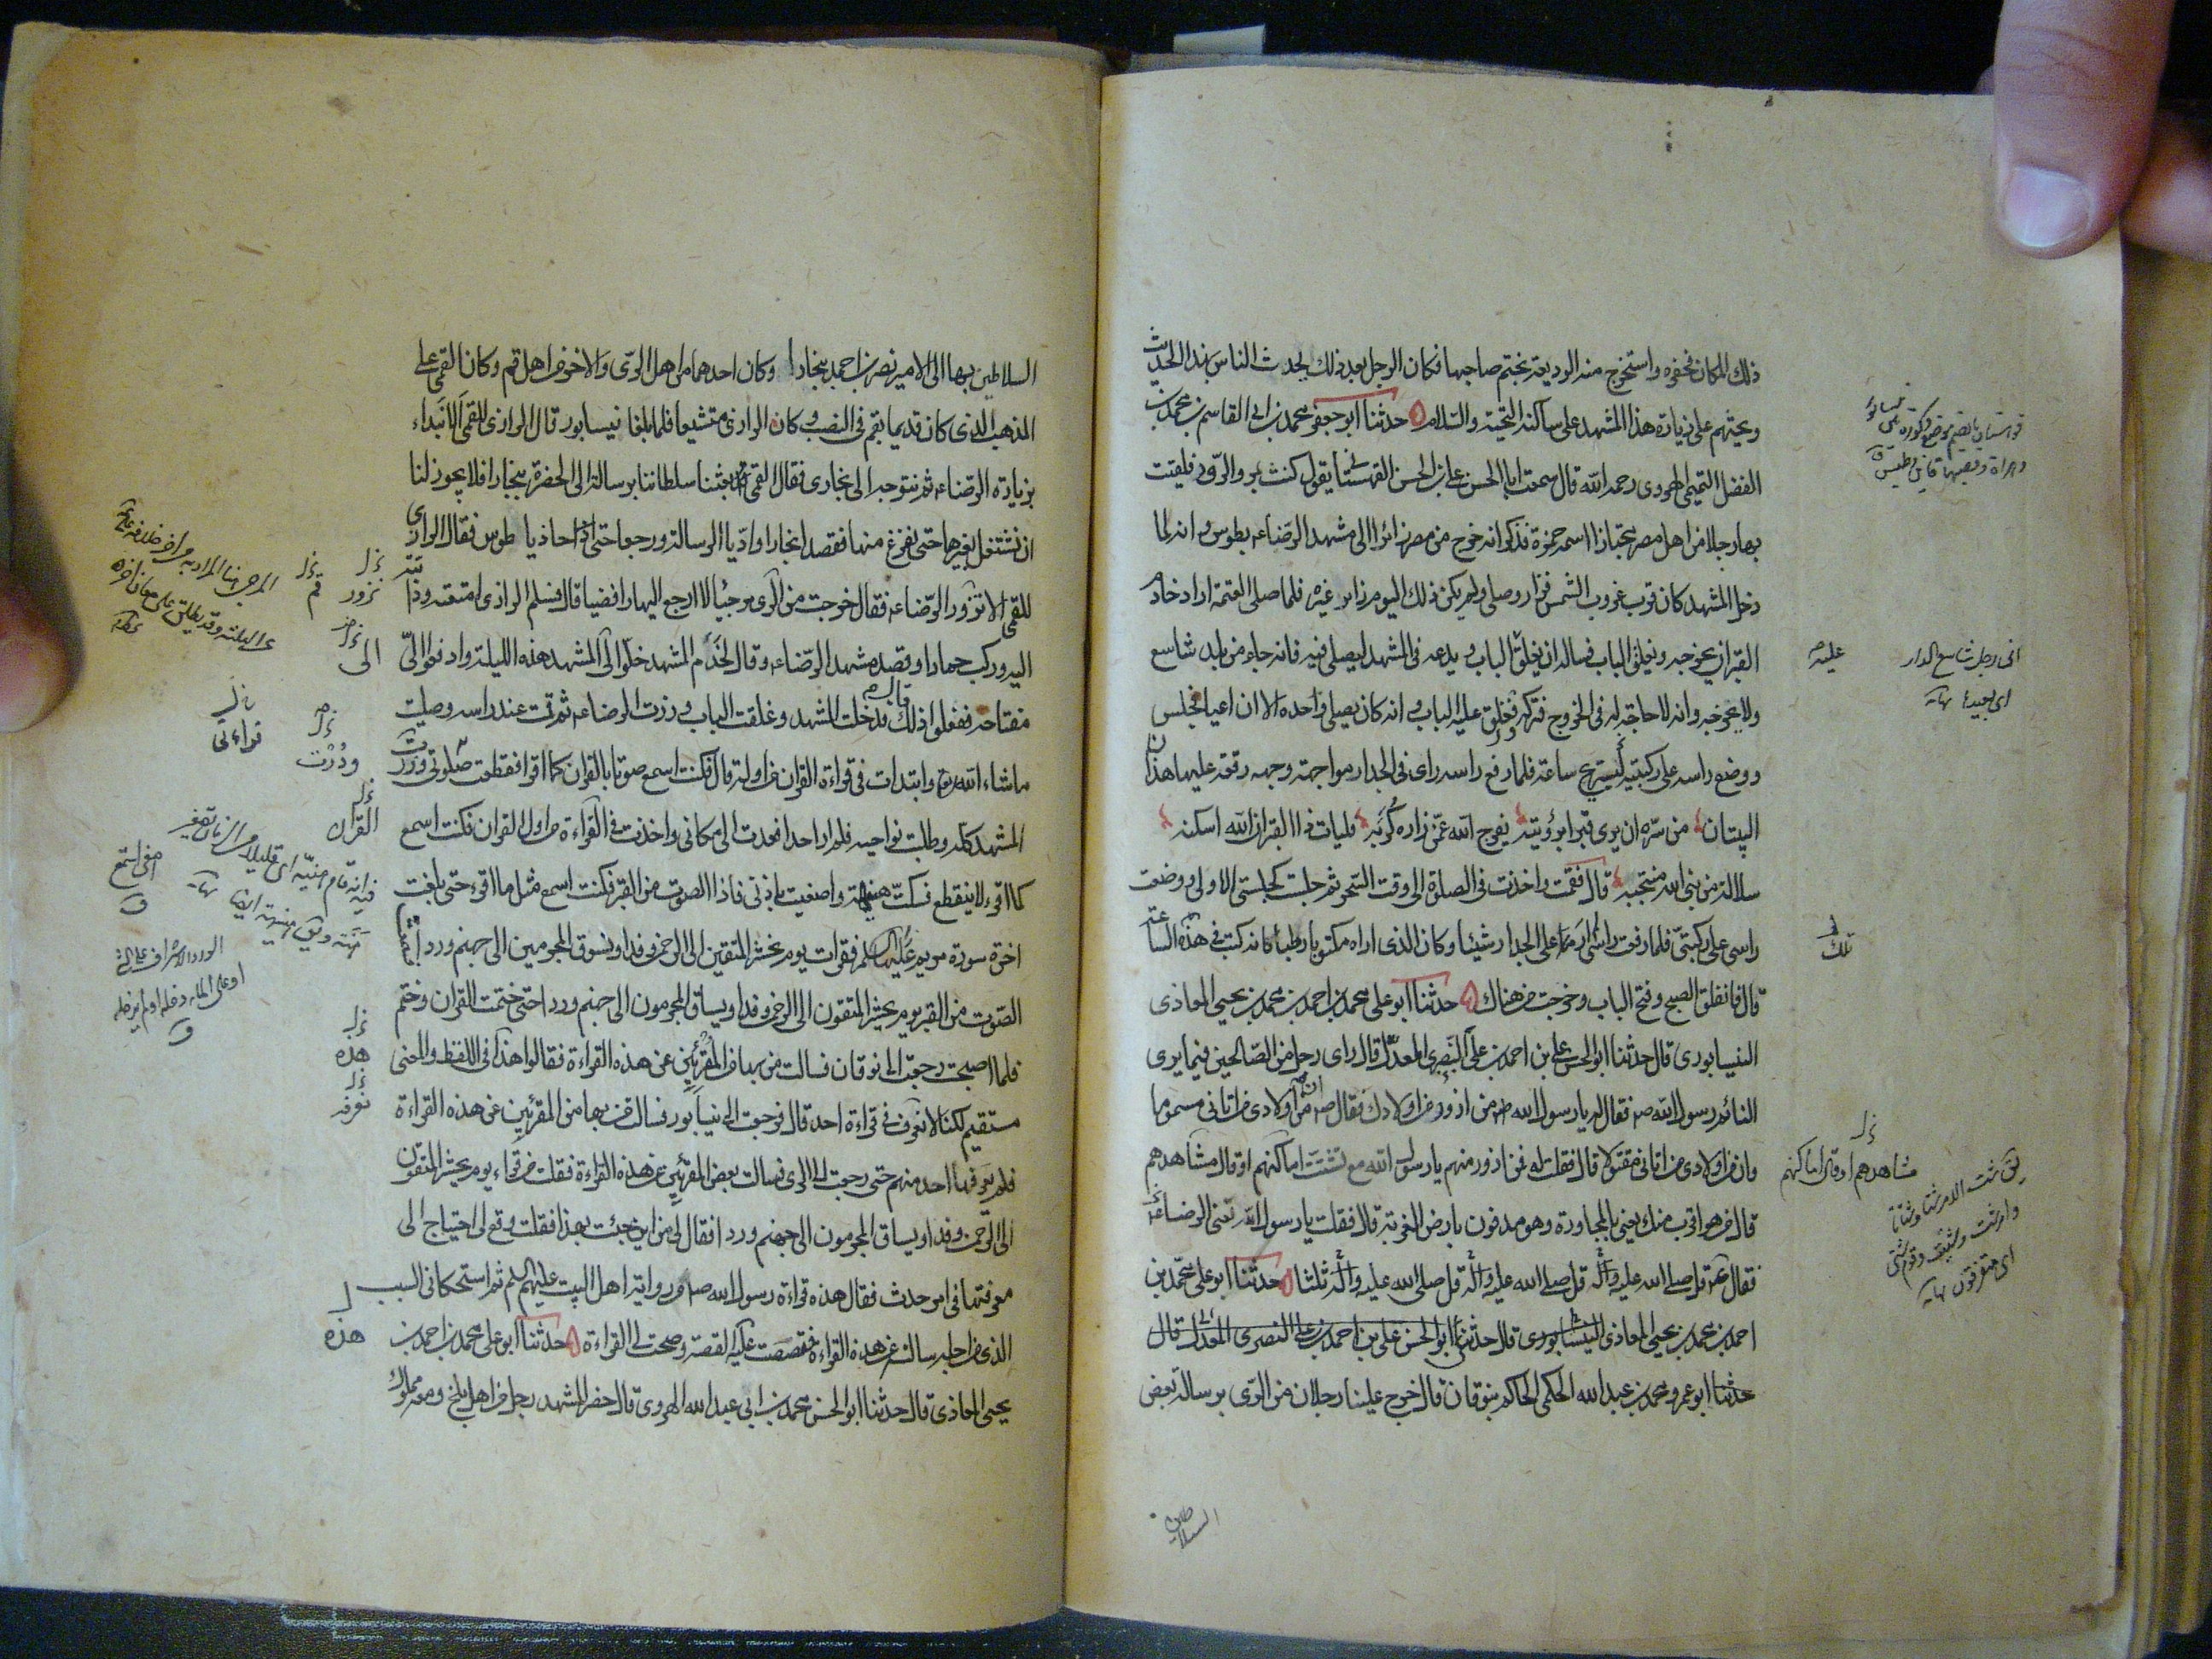 ذلك المكان فحفره واستخرج منه الوديعة بختم صاحبها فكان الرجل بعد ذلك يحدث الناس بهذا الحديث
ويحثهم على زيارة هذا المشهد على ساكنه التحية والسلام حدثنا ابو جعفر محمد بن ابي القاسم بن محمد بن
الفضل التميمي الهروي رحمه الله قال سمعت ابا الحسن علي بن الحسن القهستاني يقول كنت بمرو الرود فلقيت
بها رجلا من اهل مصر مجتازا اسمه حمزة فذكر انه خرج من مصر زائرا الى مشهد الرضا ع بطوس وانه لما
دخل المشهد كان قرب غروب الشمس فزار وصلى ولم يكن ذلك اليوم زائر غيره فلما صلى العتمة اراد خادم
القبر ان يخرجه ويغلق الباب فساله ان يغلق الباب ويدعه في المشهد ليصلي فيه فانه جاء من بلد شاسع
ولا يخرجه وانه لا حاجة له في الخروج فتركه وغلق عليه الباب وانه كان يصلي وحده الا ان اعيا فجلس
ووضع راسه على ركبتيه ليستريح ساعة فلما رفع راسه راى في الجدار مواجهة وجهه رقعة عليها هذان
البيتان من سره ان يرى قبرا برؤيته يفرج الله عمن زاره كربه فليات ذا القبر ان الله اسكنه
سلالة من نبي الله منتجبه قال فقمت واخذت في الصلوة الى وقت السحر ثم جلست كجلستي الاولى ووضعت
راسي على ركبتي فلما رفعت راسي لم ار ما على الجدار شيئا وكان الذي اراه مكتوبا رطبا كانه كتب في هذه الساعة
قال فانفلق الصبح وفتح الباب وخرجت من هناك حدثنا ابو علي محمد بن احمد بن محمد بن يحيى المعاذي
النيسابوري قال حدثنا ابو الحسن علي بن احمد بن علي البصري المعدل قال راى رجل من الصالحين فيما يرى
النائم رسول الله ص فقال له يا رسول الله ص من ازور من اولادك فقال ص ان من اولادي من اتاني مسموما
وان من اولادي من اتاني مقتولا قال فقلت له فمن ازور منهم يا رسول الله مع تشتت اماكنهم او قال مشاهدهم
قال من هو اقرب منك يعني بالمجاورة وهو مدفون بارض الغربة قال فقلت يا رسول الله تعني الرضا ع
فقال ص قل صلى الله عليه وآله قل صلى الله عليه وآله قل صلى الله عليه وآله ثلثا حدثنا ابو علي محمد بن
احمد بن محمد بن يحيى المعاذي النيسابوري قال حدثني ابو الحسن علي بن احمد بن علي النصري المعدل قال
حدثنا ابو عمرو محمد بن عبد الله الحكمي الحاكم بنوقان قال خرج علينا رجلان من الري برسالة بعض
السلاطين
عليه
انى رجل شاسع الدار
اى بعيدة نهاية
تلك
مشاهدهم او قال اماكنهم
السلاطين بها الى الامير نصر بن احمد ببخارا وكان احدهما من اهل الري والاخر من اهل قم وكان القمي على
المذهب الذي كان قديما بقم في النصب وكان الرازي متشيعا فلما بلغا نيسابور قال الرازي للقمي الا نبداء
بزيارة الرضا ع ثم نتوجه الى بخارى فقال القمي قد بعثنا سلطاننا برسالة الى الحضرة ببخارا فلا يجوز لنا
ان نشتغل بغيرها حتى نفرغ منها فقصدا بخارا واديا الرسالة ورجعا حتى اذا حاذيا طوس فقال الرازي
للقمي الا تزور الرضا ع فقال خرجت من الري مرجئا لا ارجع اليها رافضيا قال فسلم الرازي امتعته ودابته
اليه وركب حمارا وقصد مشهد الرضا ع وقال لخدم المشهد خلوا لي المشهد هذه الليلة وادفعوا الي
مفتاحه ففعلوا ذلك قال فدخلت المشهد وغلقت الباب وزرت الرضا ع ثم قمت عند راسه وصليت
ما شاء الله تع وابتدات في قراءة القران من اوله قال فكنت اسمع صوتا بالقران كما اقرا فقطعت صلوتي وزرت
المشهد كله وطلبت نواحيه فلم ار احدا فعدت الى مكاني واخذت في القراءة من اول القران فكنت اسمع
كما اقرء لا ينقطع فسكت هنيهة واصغيت باذني فاذا الصوت من القبر فكنت اسمع مثل ما اقرء حتى بلغت
اخر سورة مريم عليها السلم فقرات يوم نحشر المتقين الى الرحمن وفدا ونسوق المجرمين الى جهنم وردا فسمعت
الصوت من القبر يوم يحشر المتقون الى الرحمن وفدا ويساق المجرمون الى جهنم وردا حتى ختمت القران وختم
فلما اصبحت رجعت الى نوقان فسالت من بها من المقرئين عن هذه القراءة فقالوا هذا في اللفظ والمعنى
مستقيم لكنا لا نعرف في قراءة احد قال فرجعت الى نيسابور فسالت من بها من المقرئين عن هذه القراءة
فلم يعرفها احد منهم حتى رجعت الى الري فسالت بعض المقرئين عن هذه القراءة فقلت من قراء يوم يحشر المتقون
الى الرحمن وفدا ويساق المجرمون الى جهنم وردا فقال لي من اين جئت بهذا فقلت وقع لي احتياج الى
معرفتها في امر حدث فقال هذه قراءة رسول الله ص من رواية اهل البيت عليهم السلم ثم استحكاني السبب
الذي من اجله سالت عن هذه القراءة فقصصت عليه القصة وصحت لي القراءة حدثنا ابو علي محمد بن احمد بن
يحيى المعاذي قال حدثنا ابو الحسن محمد بن ابي عبد الله الهروي قال حضر المشهد رجل من اهل بلخ ومعه مملوك
نزور
قم
الى
وزرت
قراءتي
القران
هذه
نعرفه
هذه